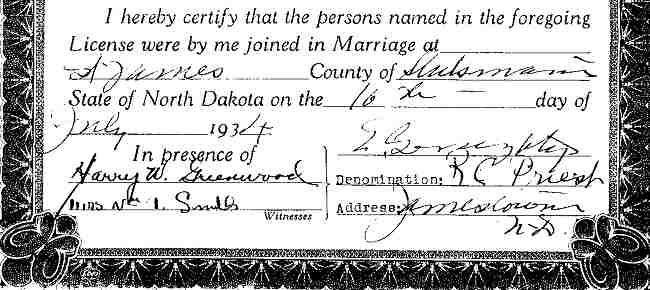 I hereby certify that the persons named in the foregoing
License were by me joined in Marriage at
St James County of Stutsman in
State of North Dakota on the 16 th day of
July 1934
In presence of
Harry W. Greenwood Denomination: R C Priest
Mrs Wm I. Smith Address: Jamestown
Witnesses
N.D.